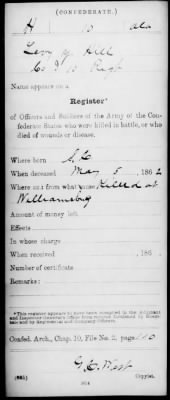 (CONFEDERATE.)
H 10 Ala
Levy Y. Hill
Co I 10 Regt
Name appears on a
Register*
of Officers and Soldiers of the Army of the Con-
federate States who were killed in battle, or who
died of wounds or disease.
Where born S.C.
When deceased May 5, 1862
Where and from what cause, Killed at
Williamsburg
Amount of money left
Effects
In whose charge
When received , 186
Number of certificate
Remarks:
*This register appears to have been compiled in the Adjutant
and Inspector General's Office from records furnished by Hospi-
tals and by Regimental and Company Officers.
Confed. Arch., Chap. 10, File No. 2, page
West
Copyist.